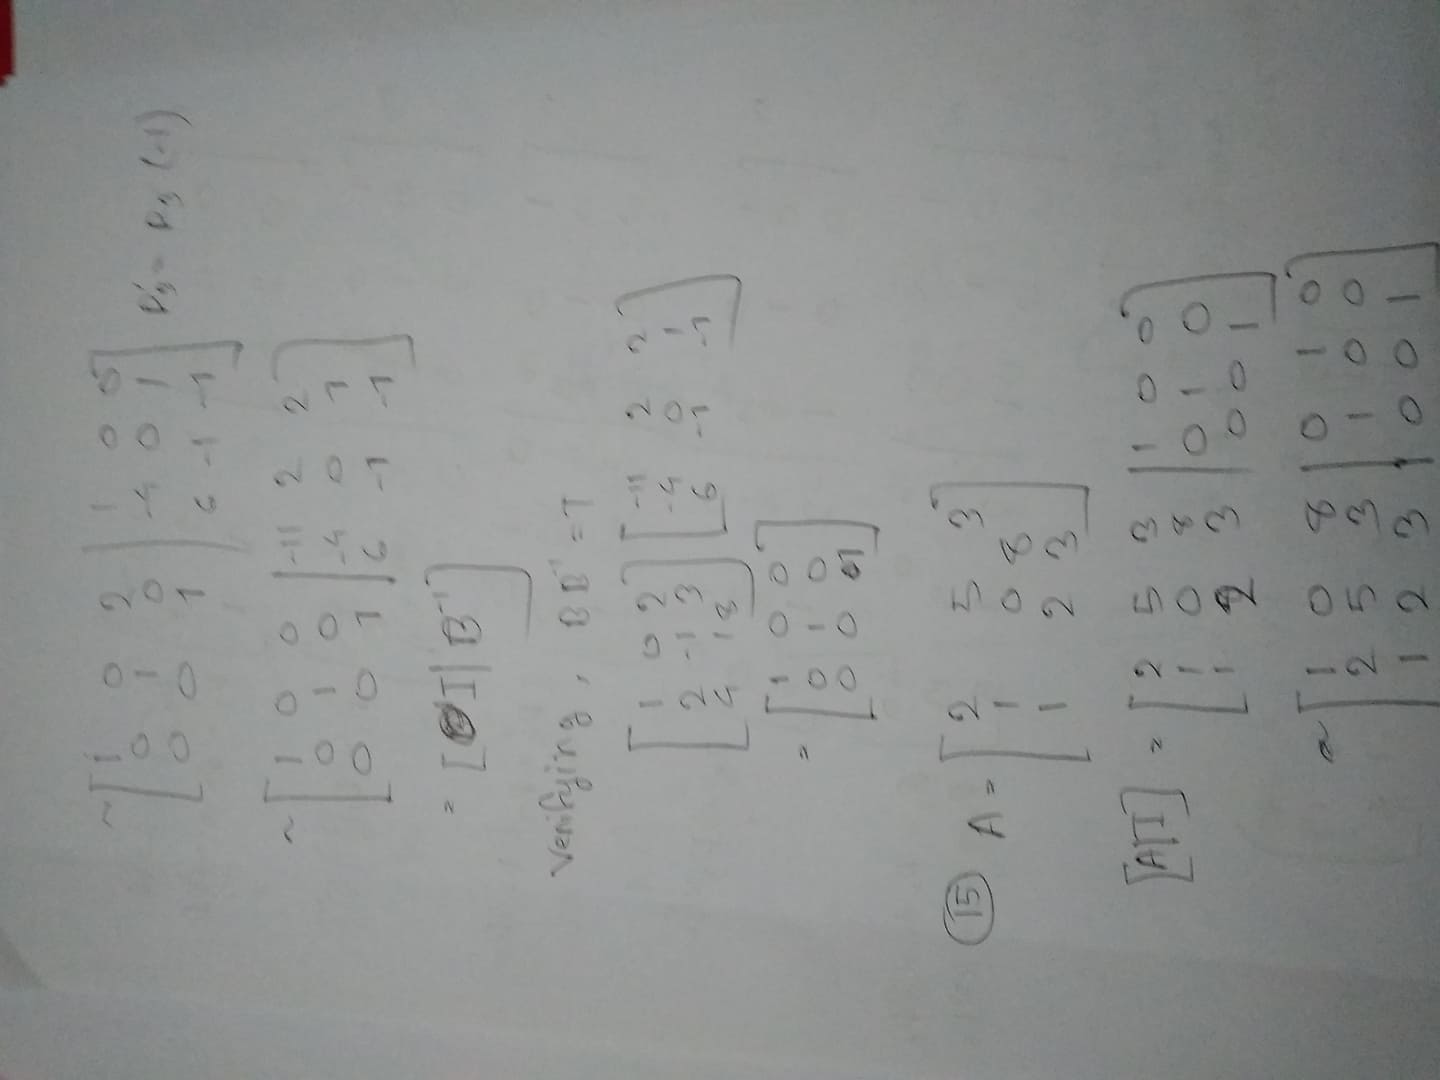 ~ [ 1 0 2 | 1 0 0 ] R'3 = R3 (-1)
0 1 0 | -4 0 1
0 0 1 | 6 -1 -1
~ [ 1 0 0 | -11 2 2 ]
0 1 0 | -4 0 1
0 0 1 | 6 -1 -1
= [ I | B⁻¹ ]
Verifying, BB⁻¹ = I
[ 1 0 2 ] [ -11 2 2 ]
2 -1 3 -4 0 1
4 1 8 6 -1 -1
= [ 1 0 0 ]
0 1 0
0 0 1
15 A = [ 2 5 3 ]
1 0 8
1 2 3
[A|I] = [ 2 5 3 | 1 0 0 ]
1 0 8 | 0 1 0
1 2 3 | 0 0 1
~ [ 1 0 8 | 0 1 0 ]
2 5 3 | 1 0 0
1 2 3 | 0 0 1